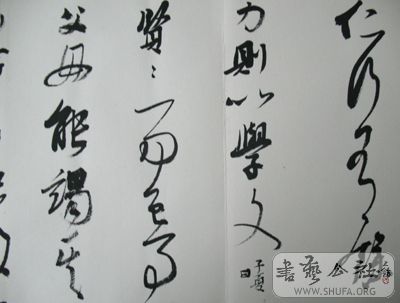 仁行有餘
力則以學文 子夏曰
賢〻易色事
父母能竭其
書藝公社
WWW.SHUFA.ORG